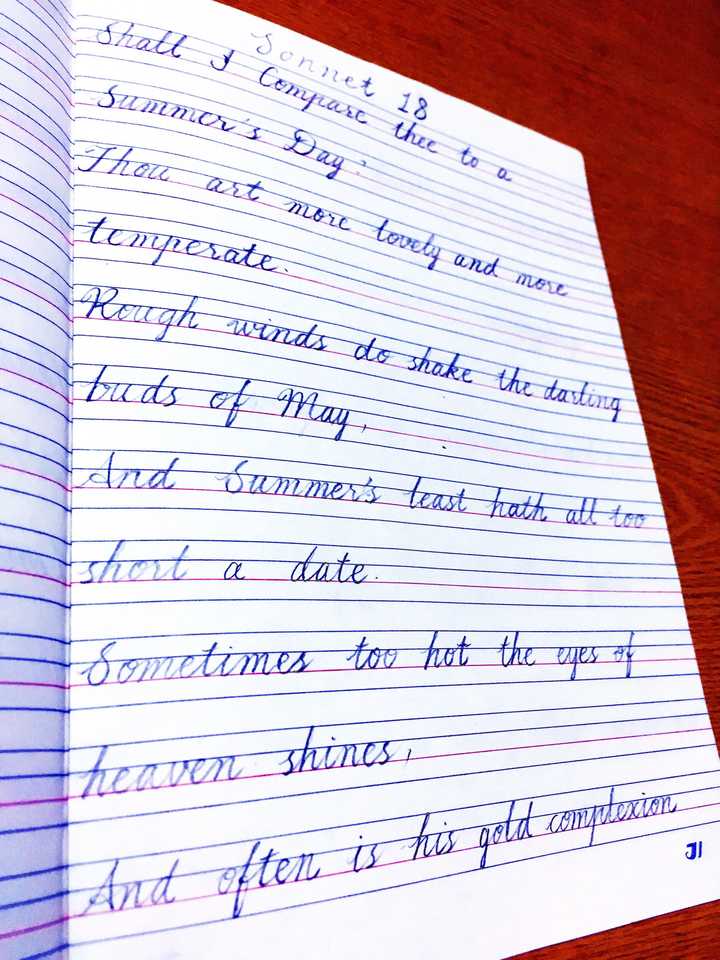 Sonnet 18
Shall I Compare thee to a
Summer's Day?
Thou art more lovely and more
temperate.
Rough winds do shake the darling
buds of May,
And Summer's least hath all too
short a date.
Sometimes too hot the eyes of
heaven shines,
And often is his gold complexion